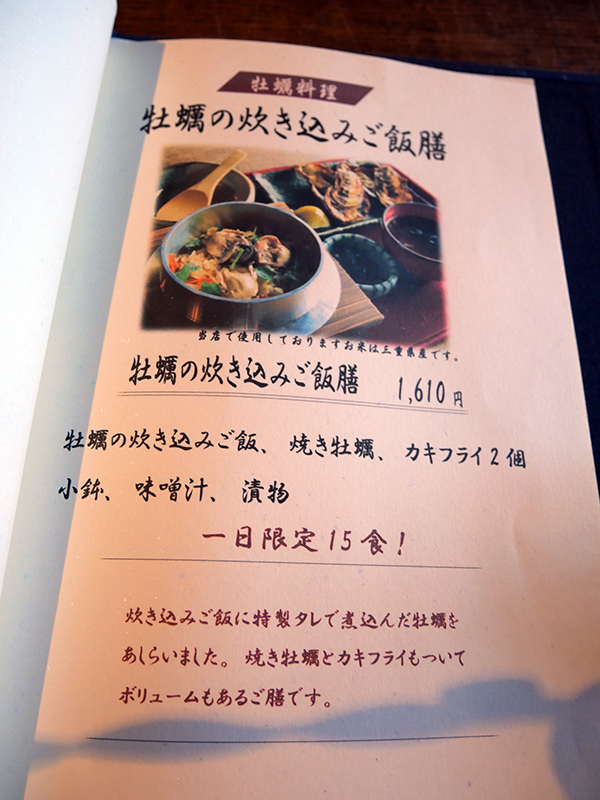 牡蠣料理
牡蠣の炊き込みご飯膳
当店で使用しておりますお米は三重県産です。
牡蠣の炊き込みご飯膳 1,610円
牡蠣の炊き込みご飯、焼き牡蠣、カキフライ2個
小鉢、味噌汁、漬物
一日限定15食!
炊き込みご飯に特製タレで煮込んだ牡蠣を
あしらいました。焼き牡蠣とカキフライもついて
ボリュームもあるご膳です。